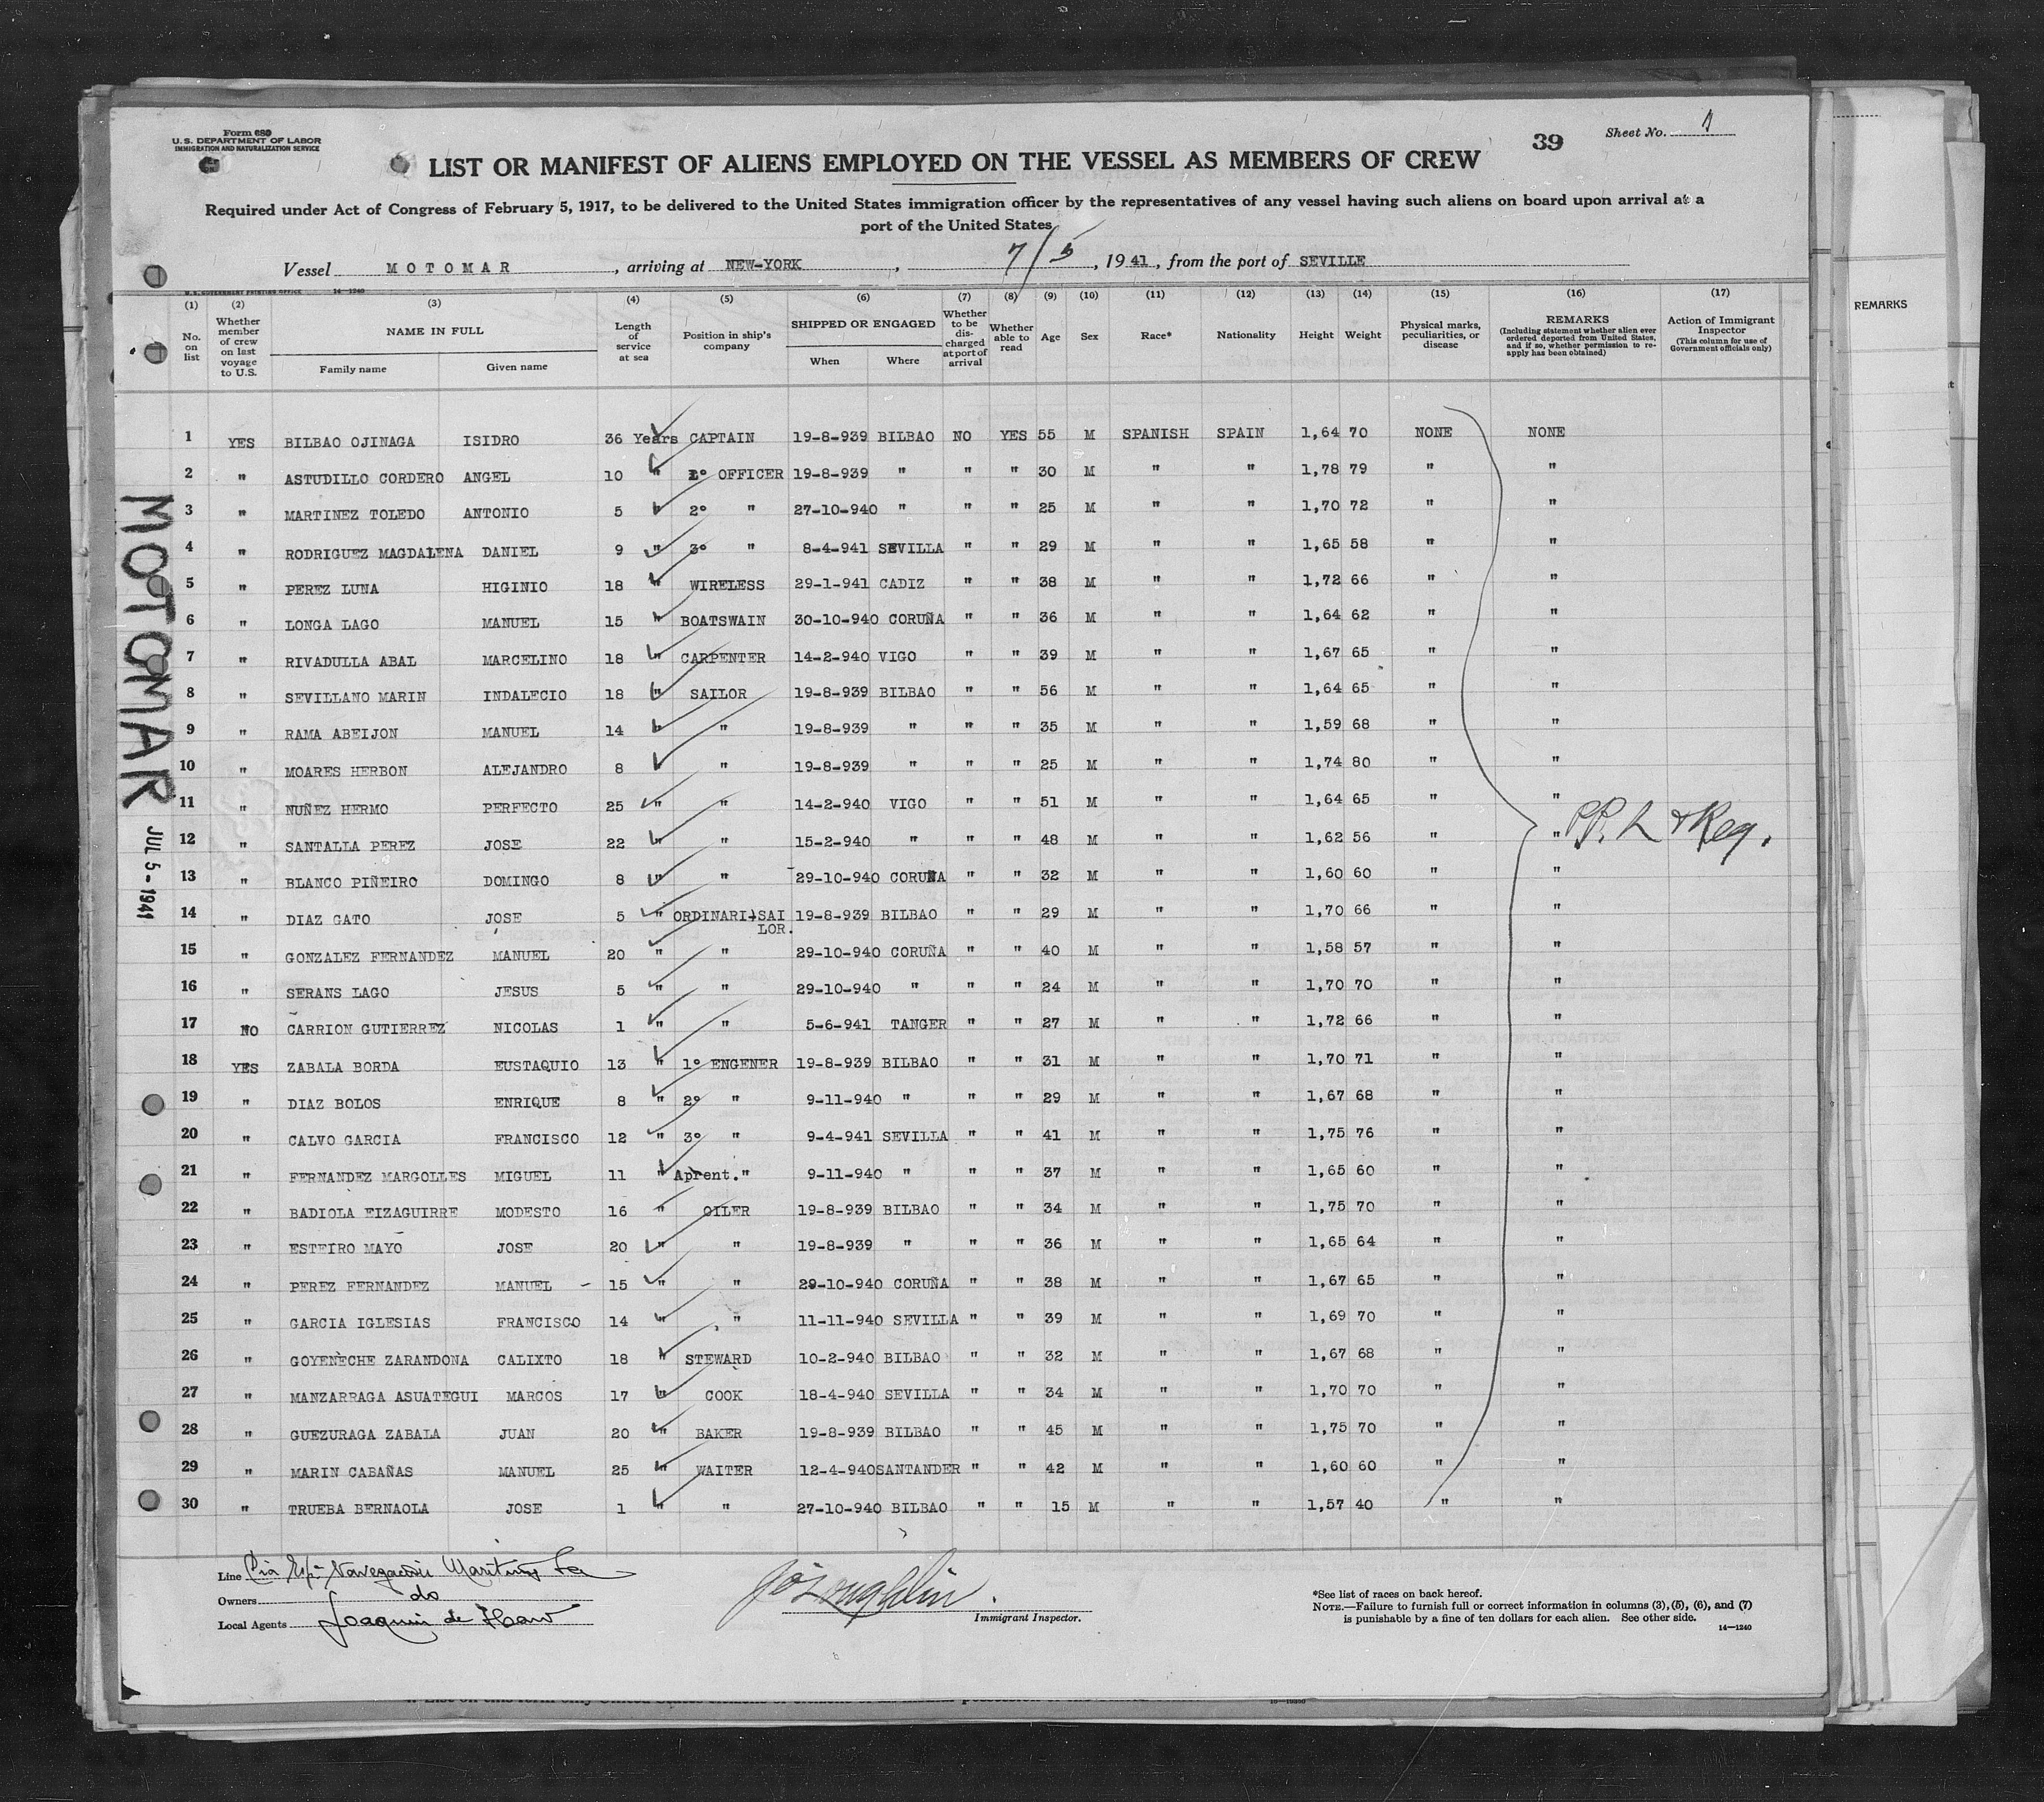 Form 680
U.S. DEPARTMENT OF LABOR
IMMIGRATION AND NATURALIZATION SERVICE
39
Sheet No. 1
LIST OR MANIFEST OF ALIENS EMPLOYED ON THE VESSEL AS MEMBERS OF CREW
Required under Act of Congress of February 5, 1917, to be delivered to the United States immigration officer by the representatives of any vessel having such aliens on board upon arrival at a
port of the United States
Vessel MOTOMAR, arriving at NEW-YORK, 7/5, 1941, from the port of SEVILLE
U.S. GOVERNMENT PRINTING OFFICE 14—1240
(1) (2) (3) (4) (5) (6) (7) (8) (9) (10) (11) (12) (13) (14) (15) (16) (17)
No. on list | Whether member of crew on last voyage to U.S. | NAME IN FULL Family name Given name | Length of service at sea | Position in ship's company | SHIPPED OR ENGAGED When Where | Whether to be discharged at port of arrival | Whether able to read | Age | Sex | Race* | Nationality | Height | Weight | Physical marks, peculiarities, or disease | REMARKS (Including statement whether alien ever ordered deported from United States, and if so, whether permission to reapply has been obtained) | Action of Immigrant Inspector (This column for use of Government officials only)
REMARKS
1 YES BILBAO OJINAGA ISIDRO 36 Years CAPTAIN 19-8-939 BILBAO NO YES 55 M SPANISH SPAIN 1,64 70 NONE NONE
2 " ASTUDILLO CORDERO ANGEL 10 " 1º OFFICER 19-8-939 " " " 30 M " " 1,78 79 " "
3 " MARTINEZ TOLEDO ANTONIO 5 " 2º " 27-10-940 " " " 25 M " " 1,70 72 " "
4 " RODRIGUEZ MAGDALENA DANIEL 9 " 3º " 8-4-941 SEVILLA " " 29 M " " 1,65 58 " "
5 " PEREZ LUNA HIGINIO 18 " WIRELESS 29-1-941 CADIZ " " 38 M " " 1,72 66 " "
6 " LONGA LAGO MANUEL 15 " BOATSWAIN 30-10-940 CORUÑA " " 36 M " " 1,64 62 " "
7 " RIVADULLA ABAL MARCELINO 18 " CARPENTER 14-2-940 VIGO " " 39 M " " 1,67 65 " "
8 " SEVILLANO MARIN INDALECIO 18 " SAILOR 19-8-939 BILBAO " " 56 M " " 1,64 65 " "
9 " RAMA ABEIJON MANUEL 14 " " 19-8-939 " " " 35 M " " 1,59 68 " "
10 " MOARES HERBON ALEJANDRO 8 " " 19-8-939 " " " 25 M " " 1,74 80 " "
11 " NUÑEZ HERMO PERFECTO 25 " " 14-2-940 VIGO " " 51 M " " 1,64 65 " "
12 " SANTALLA PEREZ JOSE 22 " " 15-2-940 " " " 48 M " " 1,62 56 " "
PP. L & Reg.
13 " BLANCO PIÑEIRO DOMINGO 8 " " 29-10-940 CORUÑA " " 32 M " " 1,60 60 " "
14 " DIAZ GATO JOSE 5 " ORDINARI-SAI 19-8-939 BILBAO " " 29 M " " 1,70 66 " "
LOR.
15 " GONZALEZ FERNANDEZ MANUEL 20 " " 29-10-940 CORUÑA " " 40 M " " 1,58 57 " "
16 " SERANS LAGO JESUS 5 " " 29-10-940 " " " 24 M " " 1,70 70 " "
17 NO CARRION GUTIERREZ NICOLAS 1 " " 5-6-941 TANGER " " 27 M " " 1,72 66 " "
18 YES ZABALA BORDA EUSTAQUIO 13 " 1º ENGENER 19-8-939 BILBAO " " 31 M " " 1,70 71 " "
19 " DIAZ BOLOS ENRIQUE 8 " 2º " 9-11-940 " " " 29 M " " 1,67 68 " "
20 " CALVO GARCIA FRANCISCO 12 " 3º " 9-4-941 SEVILLA " " 41 M " " 1,75 76 " "
21 " FERNANDEZ MARGOLLES MIGUEL 11 " Aprent. " 9-11-940 " " " 37 M " " 1,65 60 " "
22 " BADIOLA EIZAGUIRRE MODESTO 16 " OILER 19-8-939 BILBAO " " 34 M " " 1,75 70 " "
23 " ESTEIRO MAYO JOSE 20 " " 19-8-939 " " " 36 M " " 1,65 64 " "
24 " PEREZ FERNANDEZ MANUEL - 15 " " 29-10-940 CORUÑA " " 38 M " " 1,67 65 " "
25 " GARCIA IGLESIAS FRANCISCO 14 " " 11-11-940 SEVILLA " " 39 M " " 1,69 70 " "
26 " GOYENECHE ZARANDONA CALIXTO 18 " STEWARD 10-2-940 BILBAO " " 32 M " " 1,67 68 " "
27 " MANZARRAGA ASUATEGUI MARCOS 17 " COOK 18-4-940 SEVILLA " " 34 M " " 1,70 70 " "
28 " GUEZURAGA ZABALA JUAN 20 " BAKER 19-8-939 BILBAO " " 45 M " " 1,75 70 " "
29 " MARIN CABAÑAS MANUEL 25 " WAITER 12-4-940 SANTANDER " " 42 M " " 1,60 60 " "
30 " TRUEBA BERNAOLA JOSE 1 " " 27-10-940 BILBAO " " 15 M " " 1,57 40 " "
MOTOMAR
JUL 5 - 1941
Line Cia Esp. Navegación Maritima Sa
Owners do
Local Agents Joaquin de
J O'Loughlin
Immigrant Inspector.
*See list of races on back hereof.
NOTE.—Failure to furnish full or correct information in columns (3), (5), (6), and (7)
is punishable by a fine of ten dollars for each alien. See other side.
14—1240